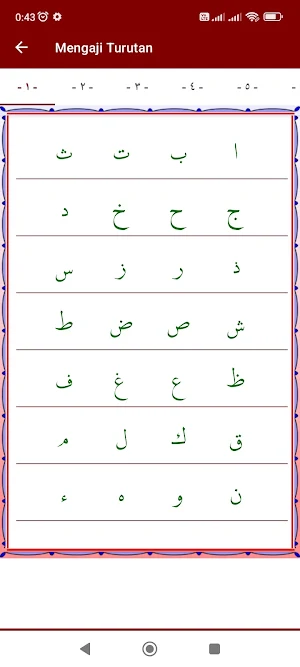 0:43
Mengaji Turutan
- ١ - - ٢ - - ٣ - - ٤ - - ٥ - -
ا ب ت ث
ج ح خ د
ذ ر ز س
ش ص ض ط
ظ ع غ ف
ق ك ل م
ن و ه ء